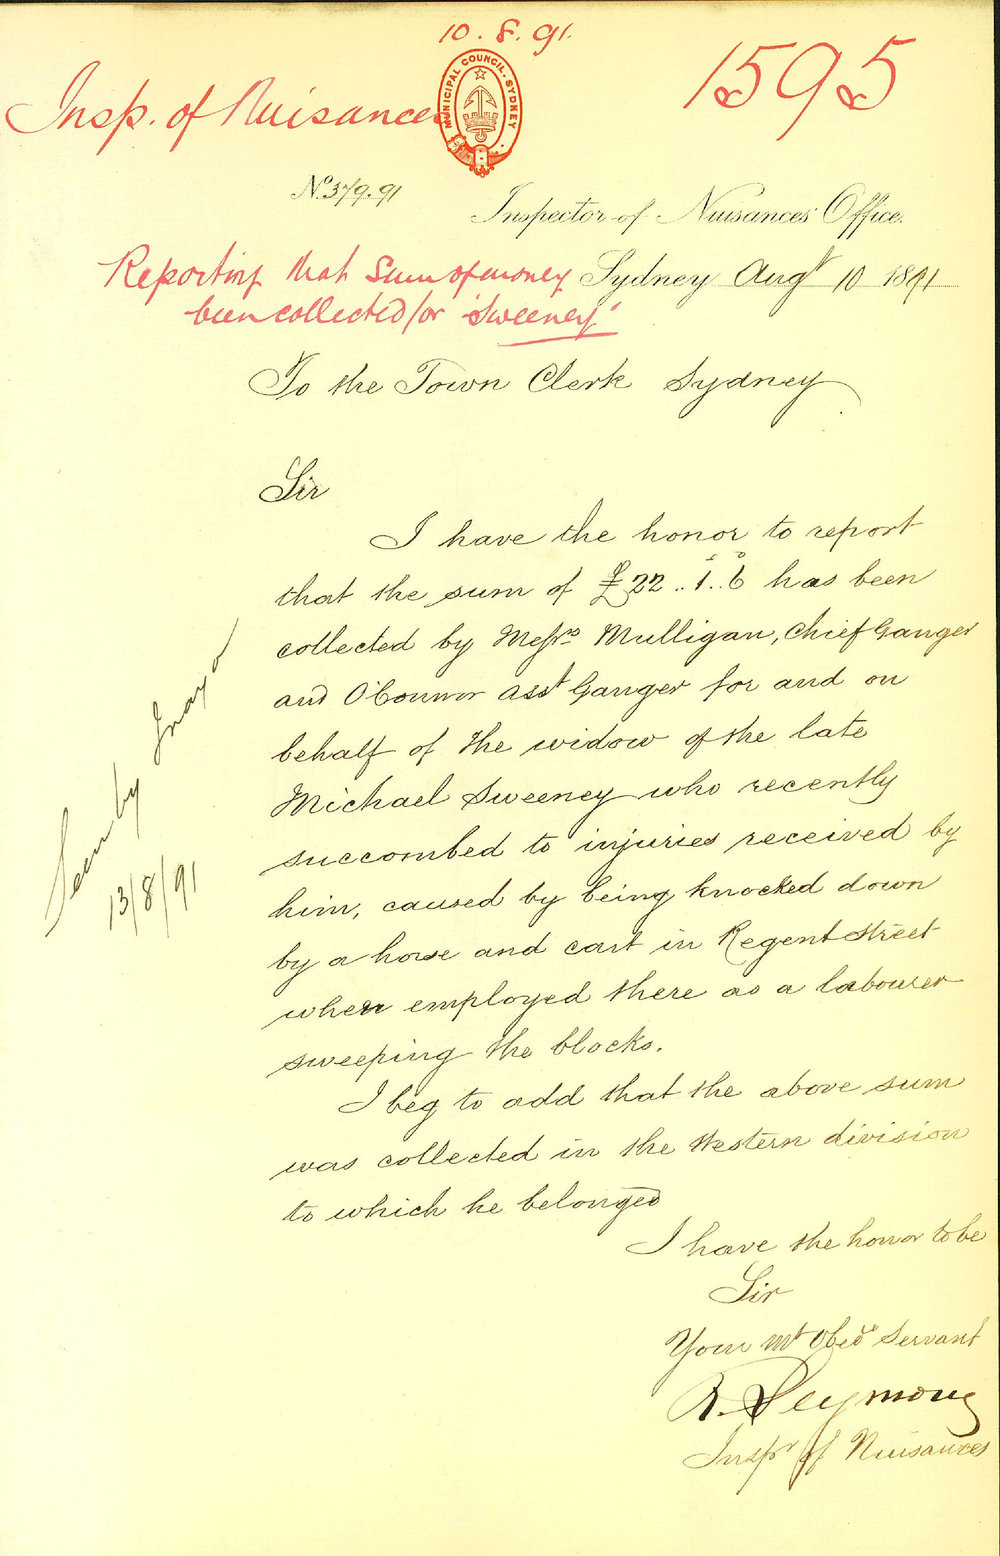 10.8.91.
1595
Insp. of Nuisances
MUNICIPAL COUNCIL. SYDNEY.
No. 379.91
Inspector of Nuisances Office.
Reporting that Sum of money
been collected for 'Sweeney'
Sydney Augt 10 1891
To the Town Clerk Sydney
Sir
I have the honor to report
that the sum of £22..1..6 has been
collected by Messrs Mulligan, Chief Ganger
and O'Connor Asst Ganger for and on
behalf of the widow of the late
Michael Sweeney who recently
succombed to injuries received by
him, caused by being knocked down
by a horse and cart in Regent Street
when employed there as a labourer
sweeping the blocks.
I beg to add that the above sum
was collected in the Western division
to which he belonged
I have the honor to be
Sir
Your Mt Obedt Servant
R. Seymour
Inspr of Nuisances
Seen by Mayor
13/8/91